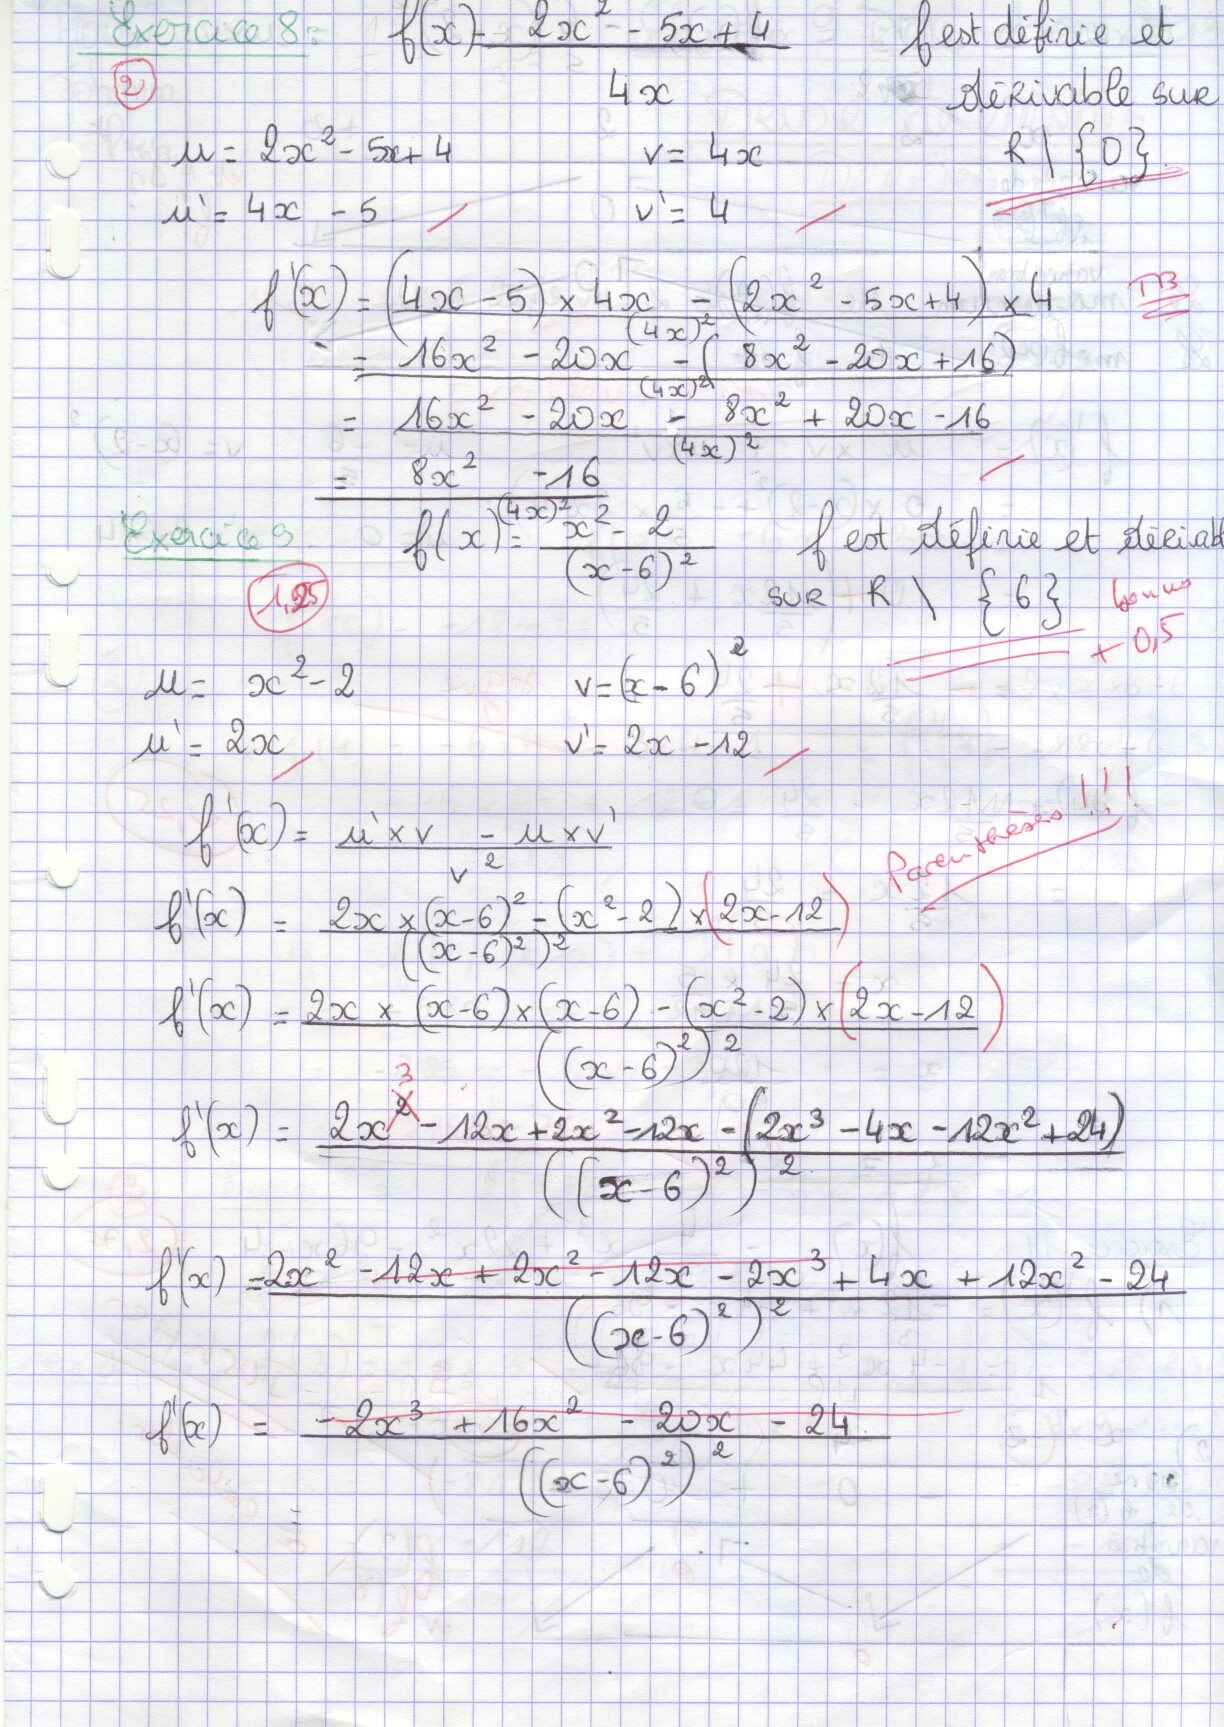 Exercice 8: f(x) = 2x² - 5x + 4 / 4x f est définie et
2 dérivable sur
u = 2x² - 5x + 4 v = 4x R \ {0}.
u' = 4x - 5 v' = 4
f'(x) = (4x - 5) × 4x - (2x² - 5x + 4) × 4 / (4x)² TB
= 16x² - 20x - (8x² - 20x + 16) / (4x)²
= 16x² - 20x - 8x² + 20x - 16 / (4x)²
= 8x² - 16 / (4x)²
Exercice 9 f(x) = x² - 2 / (x - 6)² f est définie et dérivab
1,25 sur R \ {6} bonus
+ 0,5
u = x² - 2 v = (x - 6)²
u' = 2x v' = 2x - 12
f'(x) = u' × v - u × v' / v²
Parenthèses !!!
f'(x) = 2x × (x - 6)² - (x² - 2) × (2x - 12) / ((x - 6)²)²
f'(x) = 2x × (x - 6) × (x - 6) - (x² - 2) × (2x - 12) / ((x - 6)²)²
3
f'(x) = 2x² - 12x + 2x² - 12x - (2x³ - 4x - 12x² + 24) / ((x - 6)²)²
f'(x) = 2x² - 12x + 2x² - 12x - 2x³ + 4x + 12x² - 24 / ((x - 6)²)²
f'(x) = -2x³ + 16x² - 20x - 24 / ((x - 6)²)²
=